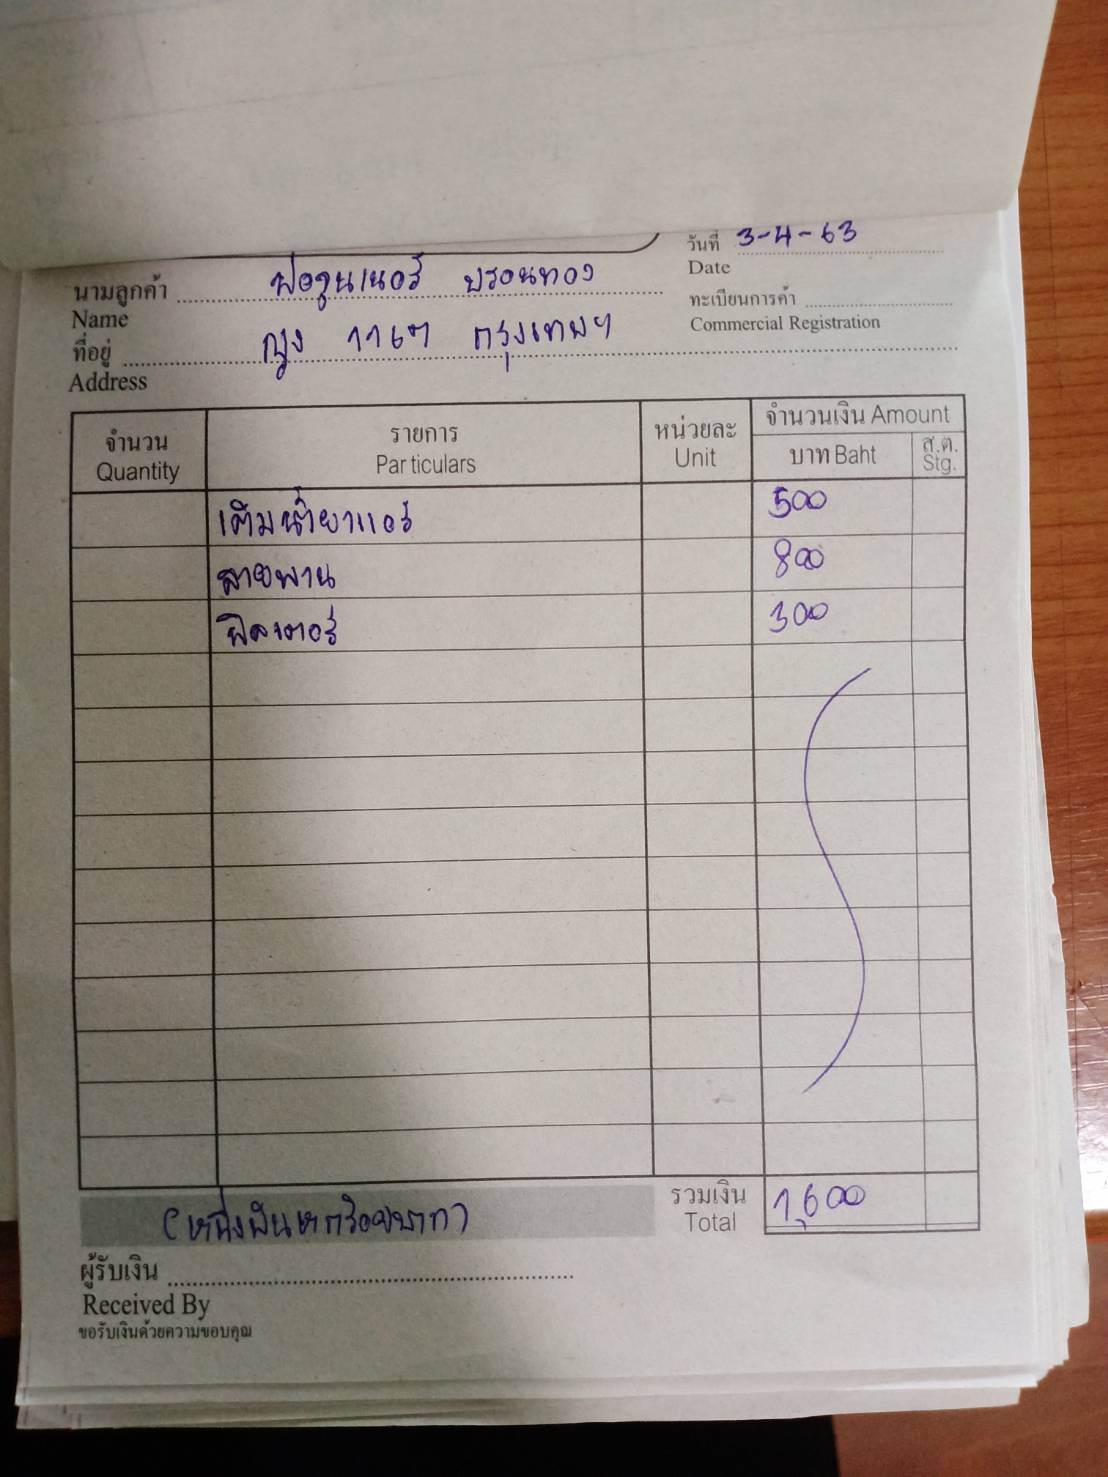 วันที่ 3-4-63
Date
นามลูกค้า ฟอจูนเนอร์ บรอนทอง
Name
ทะเบียนการค้า
Commercial Registration
ที่อยู่ ญง 1167 กรุงเทพฯ
Address
จำนวน รายการ หน่วยละ จำนวนเงิน Amount
Quantity Particulars Unit บาท Baht ส.ต. Stg.
เติมน้ำยาแอร์ 500
สายพาน 800
ฟิลเตอร์ 300
(หนึ่งพันหกร้อยบาท) รวมเงิน 1,600
Total
ผู้รับเงิน
Received By
ขอรับเงินด้วยความขอบคุณ